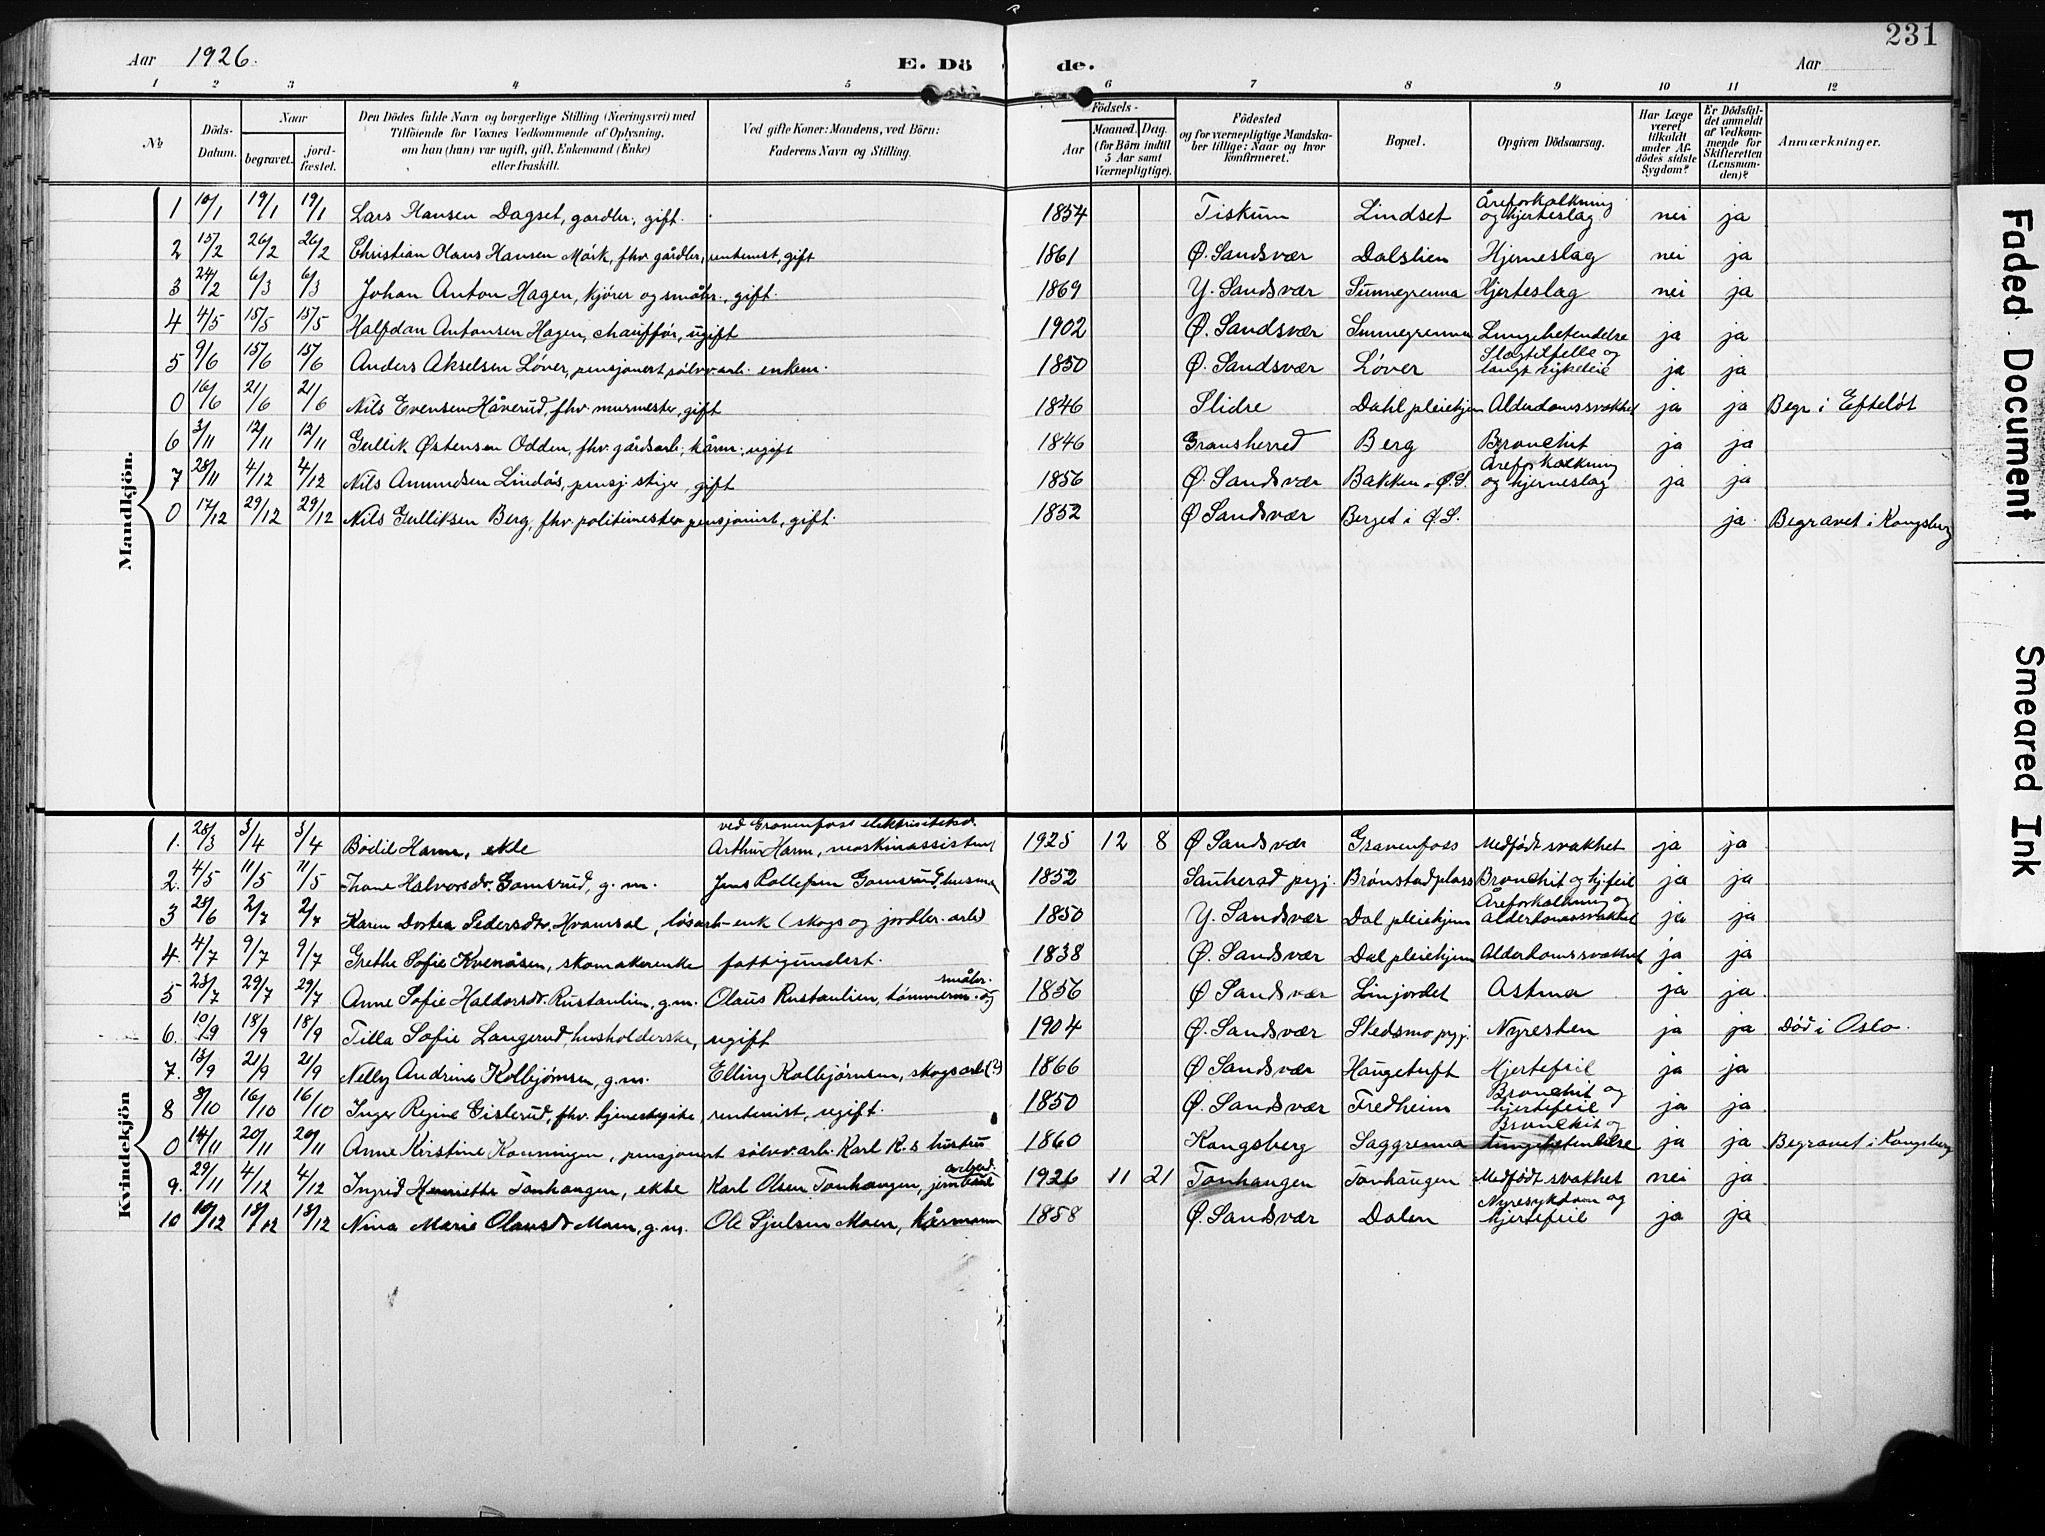 231
Aar 1926. E. Dö de. Aar
1 2 3 4 5 6 7 8 9 10 11 12
No
Döds-Datum.
Naar
begravet.
jord-fæstet.
Den Dödes fulde Navn og borgerlige Stilling (Næringsvei) med
Tilföiende for Voxnes Vedkommende af Oplysning,
om han (hun) var ugift, gift, Enkemand (Enke)
eller fraskilt.
Ved gifte Koner: Mandens, ved Börn:
Faderens Navn og Stilling.
Födsels-
Aar
Maaned. Dag.
(for Börn indtil
5 Aar samt
Værnepligtige).
Födested
og for værnepligtige Mandska-
ber tillige: Naar og hvor
konfirmeret.
Bopæl.
Opgiven Dödsaarsag.
Har Læge
været
tilkaldt
under Af-
dödes sidste
Sygdom?
Er Dödsfal-
det anmeldt
af Vedkom-
mende for
Skifteretten
(Lensman-
den)?
Anmærkninger.
Mandkjön.
1 10/1 19/1 19/1 Lars Hansen Dagset, gardbr., gift. 1854 Fiskum Lindset Åreforkalkning og hjerteslag nei ja
2 15/2 26/2 26/2 Christian Olaus Hansen Mørk, fhv. gårdbr., rentenist, gift 1861 Ø. Sandsvær Dalslien Hjerneslag nei ja
3 24/2 6/3 6/3 Johan Anton Hagen, kjører og småbr., gift. 1869 Y. Sandsvær Sunnegrenna Hjerteslag nei ja
4 4/5 15/5 15/5 Halfdan Antonsen Hagen, chauffør, ugift 1902 Ø. Sandsvær Sunnegrenna Lungebetendelse ja ja
5 9/6 15/6 15/6 Anders Akselsen Løver, pensjonert sølvv.arb. enkem. 1850 Ø. Sandsvær Løver Slagtilfelle og langt sykeleie ja ja
0 16/6 21/6 21/6 Nils Evensen Håverud, fhv. murmester, gift 1846 Slidre Dahl pleiehjem Alderdomssvakhet ja ja Begr. i Efteløt
6 3/11 12/11 12/11 Gullik Østensen Odden, fhv. gårdsarb., kårm., ugift 1846 Gransherred Berg Bronchit ja ja
7 28/11 4/12 4/12 Nils Amundsen Lindås, pensj. stiger, gift 1856 Ø. Sandsvær Bakken, Ø.S. Åreforkalkning og hjerneslag ja ja
0 17/12 29/12 29/12 Nils Gulliksen Berg, fhv. politimester pensjonist, gift. 1852 Ø Sandsvær Berget i Ø.S. ja. Begravet i Kongsberg
Kvindekjön
1. 28/3 3/4 3/4 Bodil Harm, ekte ved Gravenfoss elektrisitetsv. Arthur Harm, maskinassistent 1925 12 8 Ø Sandsvær Gravenfoss Medfødt svakhet ja ja
2. 4/5 11/5 11/5 Thone Halvorsdr. Gamsrud, g.m. Jens Rollefsen Gamsrud, husma 1852 Sauherad pgj. Brønstadplass Bronchit og hj.feil ja ja
3 28/6 2/7 2/7 Karen Dortea Pedersdtr. Hvamsal, løsarb-enk (skogs og jordbr. arb) 1850 Y. Sandsvær Dal pleiehjem Åreforkalkning og alderdomssvakhet ja ja
4. 4/7 9/7 9/7 Grethe Sofie Kvenåsen, skomakerenke fattigunderst. 1838 Ø. Sandsvær Dal pleiehjem Alderdomssvakhet ja ja
5 23/7 29/7 29/7 Anne Sofie Haldorsdr. Rustaulien, g.m. Olaus Rustaulien, tømmerm. og småbr. 1856 Ø Sandsvær Linjordet Astma ja ja
6. 10/9 18/9 18/9 Tilla Sofie Langerud, husholderske, ugift 1904 Ø. Sandsvær Skedsmo pgj. Nyresten ja ja Død i Oslo.
7. 13/9 21/9 21/9 Nelly Andrine Kolbjørnsen, g.m. Elling Kolbjørnsen, skogsarb (?) 1866 Ø Sandsvær Haugetuft Hjertefeil ja ja
8 8/10 16/10 16/10 Inger Regine Gislerud, fhv. tjenestepike, rentenist, ugift. 1850 Ø. Sandsvær Fredheim Bronchit og hjertefeil ja ja
0 14/11 20/11 20/11 Anne Kirstine Konningen, pensjonert sølvv.arb. Karl K.s hustru 1860 Kongsberg Saggrenna Bronchit og lungebetendelse ja ja Begravet i Kongsberg
9. 29/11 4/12 4/12 Ingrid Henriette Tonhaugen, ekte Karl Olsen Tonhaugen, jernbane arbeid. 1926 11 21 Tonhaugen Tonhaugen Medfødt svakhet nei ja
10 10/12 18/12 18/12 Nina Marie Olausdr Moen, g.m. Ole Gjulsen Moen, kårmann 1858 Ø. Sandsvær Dalen Nyresykdom og hjertefeil ja ja
Faded Document
Smeared Ink